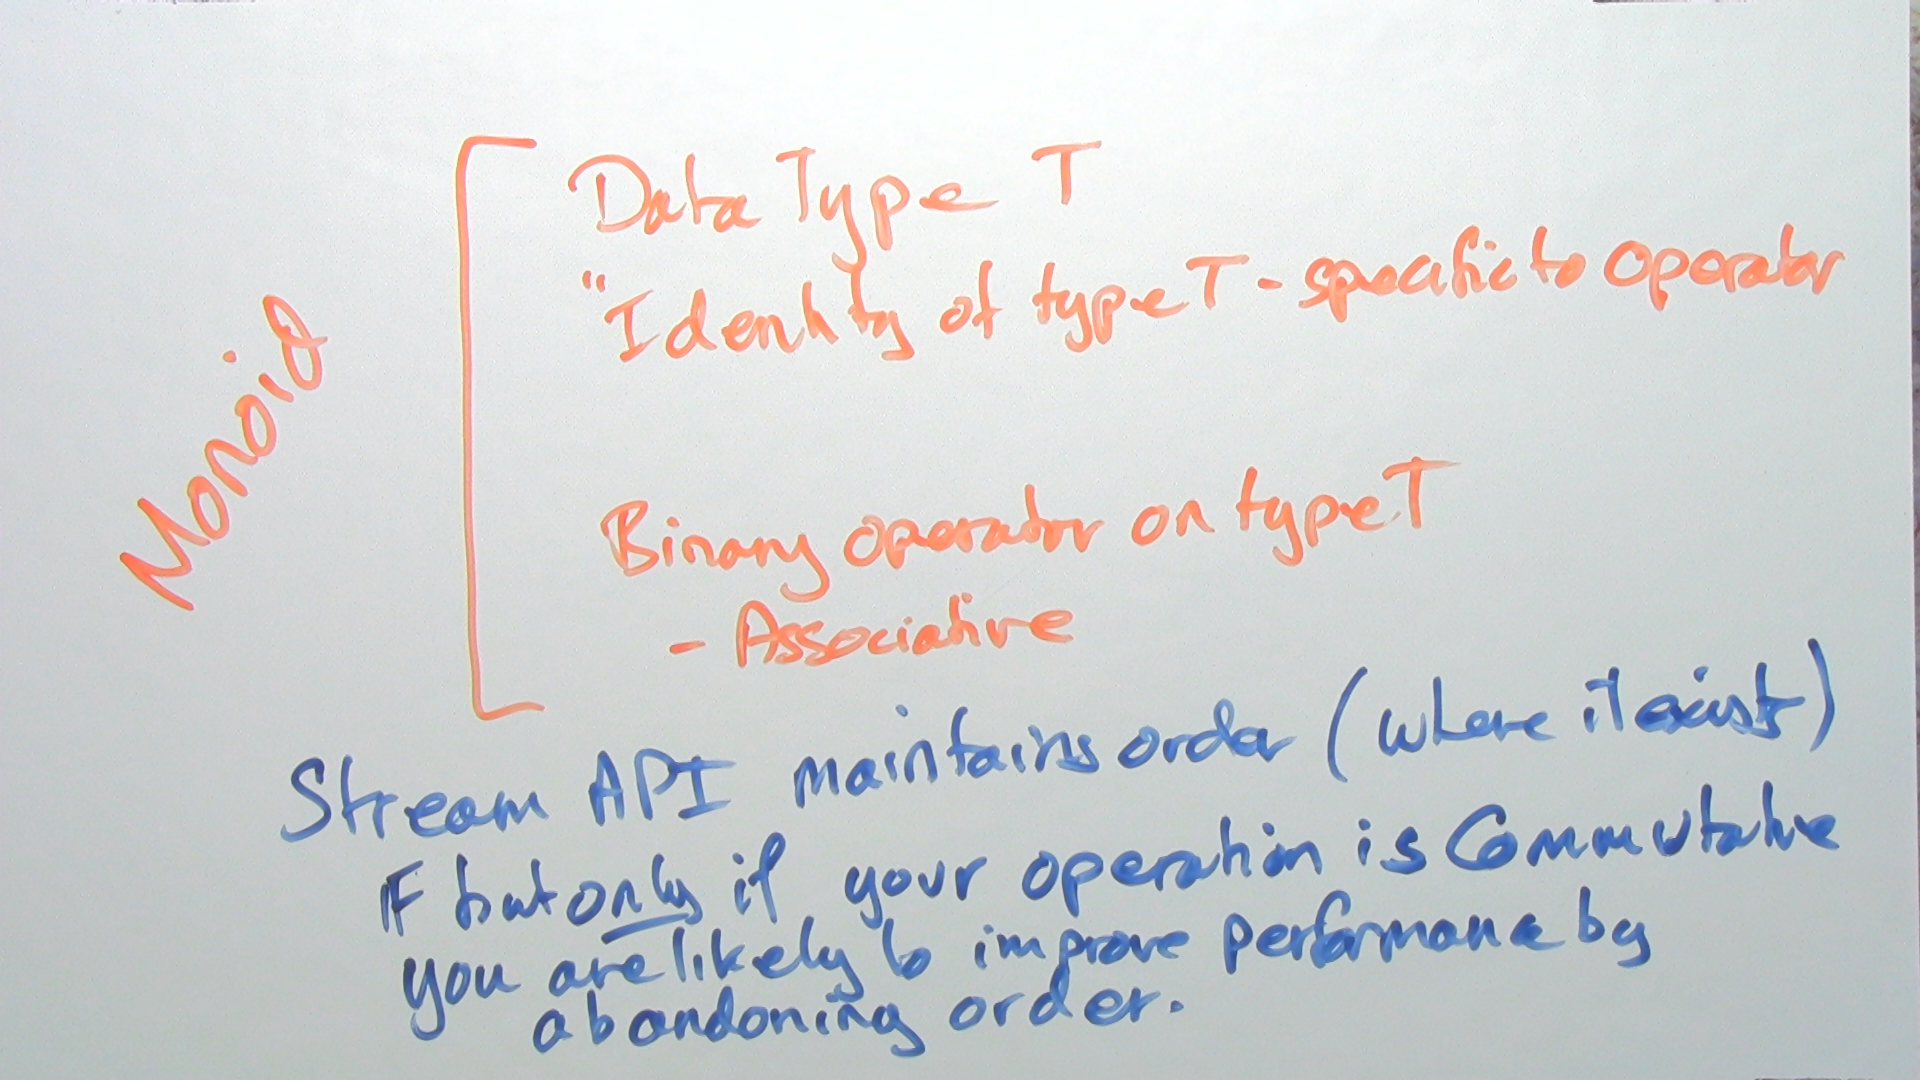 Monoid
Data Type T
"Identity of type T - specific to operator
Binary operator on type T
- Associative
Stream API maintains order (where it exist)
IF but only if your operation is Commutative
you are likely to improve performance by
abandoning order.